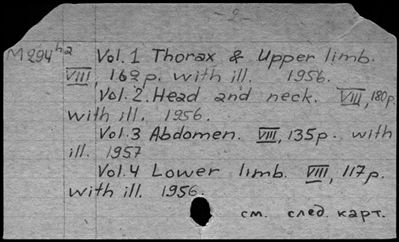 - 2 -
M294h2 Vol. 1 Thorax & Upper limb.
VIII, 162p. with ill. 1956.
Vol. 2. Head and neck. VIII, 180p.
with ill. 1956.
Vol. 3 Abdomen. VIII, 135p. with
ill. 1957
Vol. 4 Lower limb. VIII, 117p.
with ill. 1956.
см. след. карт.